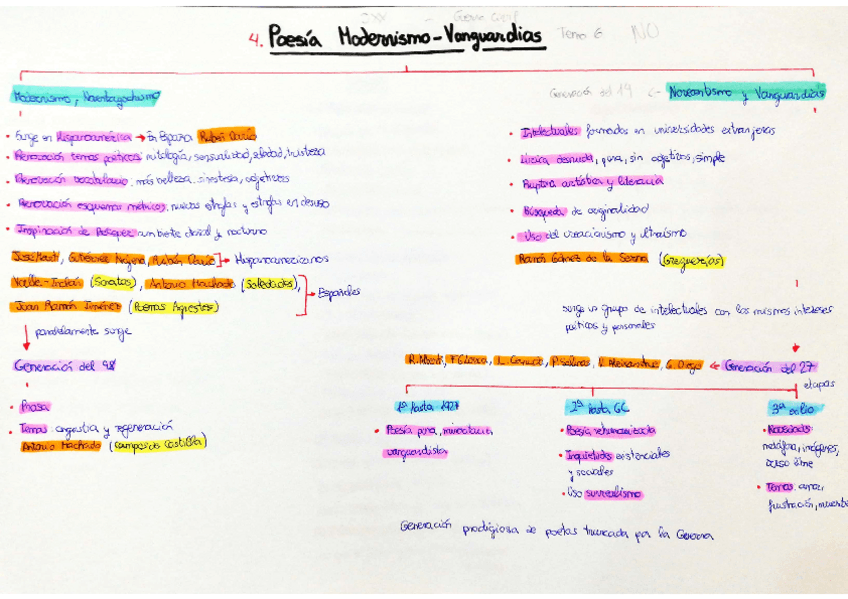 4. Poesía Modernismo - Vanguardias Tema 6 NO
Modernismo, Noventayochismo
• Surge en Hispanoamérica → En España Rubén Darío
• Renovación temas poéticos: mitología, sensualidad, soledad, tristeza
• Renovación vocabulario: más belleza, sinestesia, adjetivos
• Renovación esquemas métricos: nuevas estrofas y estrofas en desuso
• Inspiración de ambiente otoñal y nocturno
José Martí, Gutiérrez Nájera, Rubén Darío → Hispanoamericanos
Valle-Inclán (Sonatas), Antonio Machado (Soledades),
Juan Ramón Jiménez (Poemas Agrestes) → Españoles
paralelamente surge
Generación del 98
• Prosa
• Temas: angustia y regeneración
Antonio Machado (Campos de Castilla)
Generación del 14 ← Novecentismo y Vanguardias
• Intelectuales formados en universidades extranjeras
• Lírica desnuda, pura, sin adjetivos, simple
• Ruptura artística y literaria
• Búsqueda de originalidad
• Uso del creacionismo y ultraísmo
Ramón Gómez de la Serna (Greguerías)
surge un grupo de intelectuales con los mismos intereses
políticos y personales
R. Alberti, F. G. Lorca, L. Cernuda, P. Salinas, V. Aleixandre, G. Diego ← Generación del 27
etapas
1ª hasta 1927
• Poesía pura,
vanguardista
2ª hasta GC
• Poesía rehumanizada
• Inquietudes existenciales
y sociales
• Uso surrealismo
3ª exilio
• Novedades:
metáfora, imágenes,
verso libre
• Temas: amor,
frustración, muerte
Generación prodigiosa de poetas truncada por la Guerra